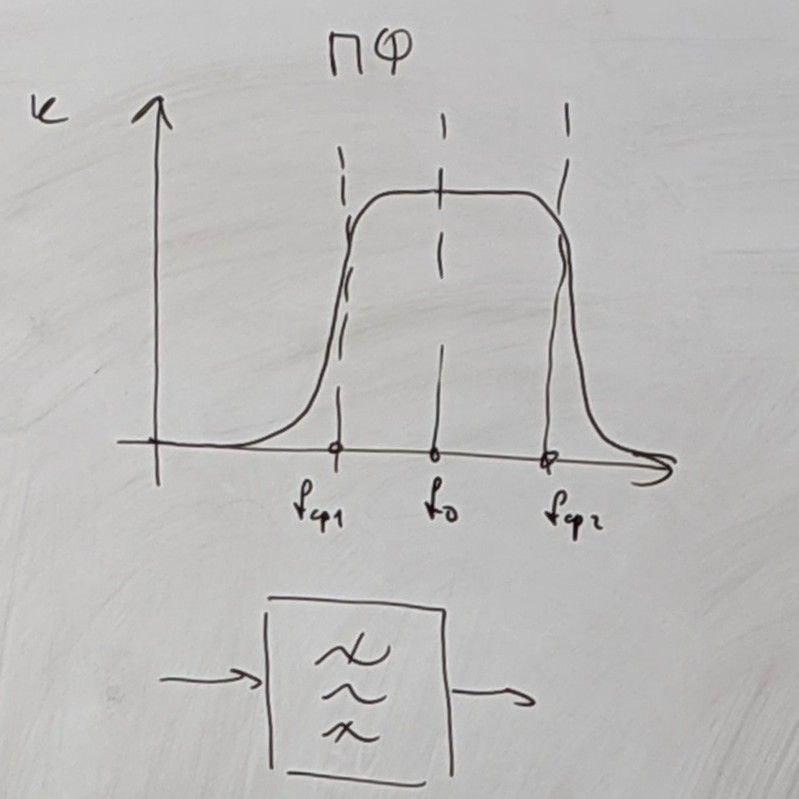 ПФ
K
fср1 f0 fср2